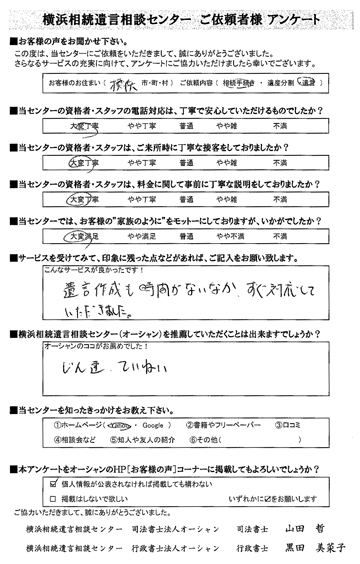 横浜相続遺言相談センター ご依頼者様 アンケート
■お客様の声をお聞かせ下さい。
この度は、当センターにご依頼をいただきまして、誠にありがとうございました。
さらなるサービスの充実に向けて、アンケートにご協力いただけましたら幸いでございます。
お客様のお住まい( 横浜 市・町・村 ) ご依頼内容( 相続手続き ・ 遺産分割 ・ 遺言 )
■当センターの資格者・スタッフの電話対応は、丁寧で安心していただけるものでしたか?
大変丁寧 やや丁寧 普通 やや雑 不満
■当センターの資格者・スタッフは、ご来所時に丁寧な接客をしておりましたか?
大変丁寧 やや丁寧 普通 やや雑 不満
■当センターの資格者・スタッフは、料金に関して事前に丁寧な説明をしておりましたか?
大変丁寧 やや丁寧 普通 やや雑 不満
■当センターでは、お客様の"家族のように"をモットーにしておりますが、いかがでしたか?
大変満足 やや満足 普通 やや不満 不満
■サービスを受けてみて、印象に残った点などがあれば、ご記入をお願い致します。
こんなサービスが良かったです!
遺言作成も時間がないなか、すぐ対応して
いただきました。
■横浜相続遺言相談センター(オーシャン)を推薦していただくことは出来ますでしょうか?
オーシャンのココがお薦めでした!
じん速、ていねい
■当センターを知ったきっかけをお教え下さい。
①ホームページ( Yahoo ・ Google ) ②書籍やフリーペーパー ③口コミ
④相談会など ⑤知人や友人の紹介 ⑥その他( )
■本アンケートをオーシャンのHP[お客様の声]コーナーに掲載してもよろしいでしょうか?
☑ 個人情報が公表されなければ掲載しても構わない
□ 掲載はしないで欲しい いずれかに☑をお願いします
ご協力いただきまして、誠にありがとうございました。
横浜相続遺言相談センター 司法書士法人オーシャン 司法書士 山田 哲
横浜相続遺言相談センター 行政書士法人オーシャン 行政書士 黒田 美菜子